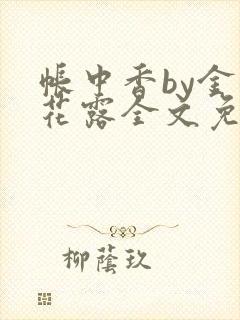 帳中香by金
花露全文免
柳蔭玖